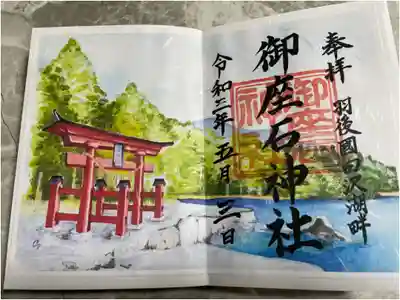 奉拝
羽後國田沢湖畔
御座石神社
令和三年五月三日